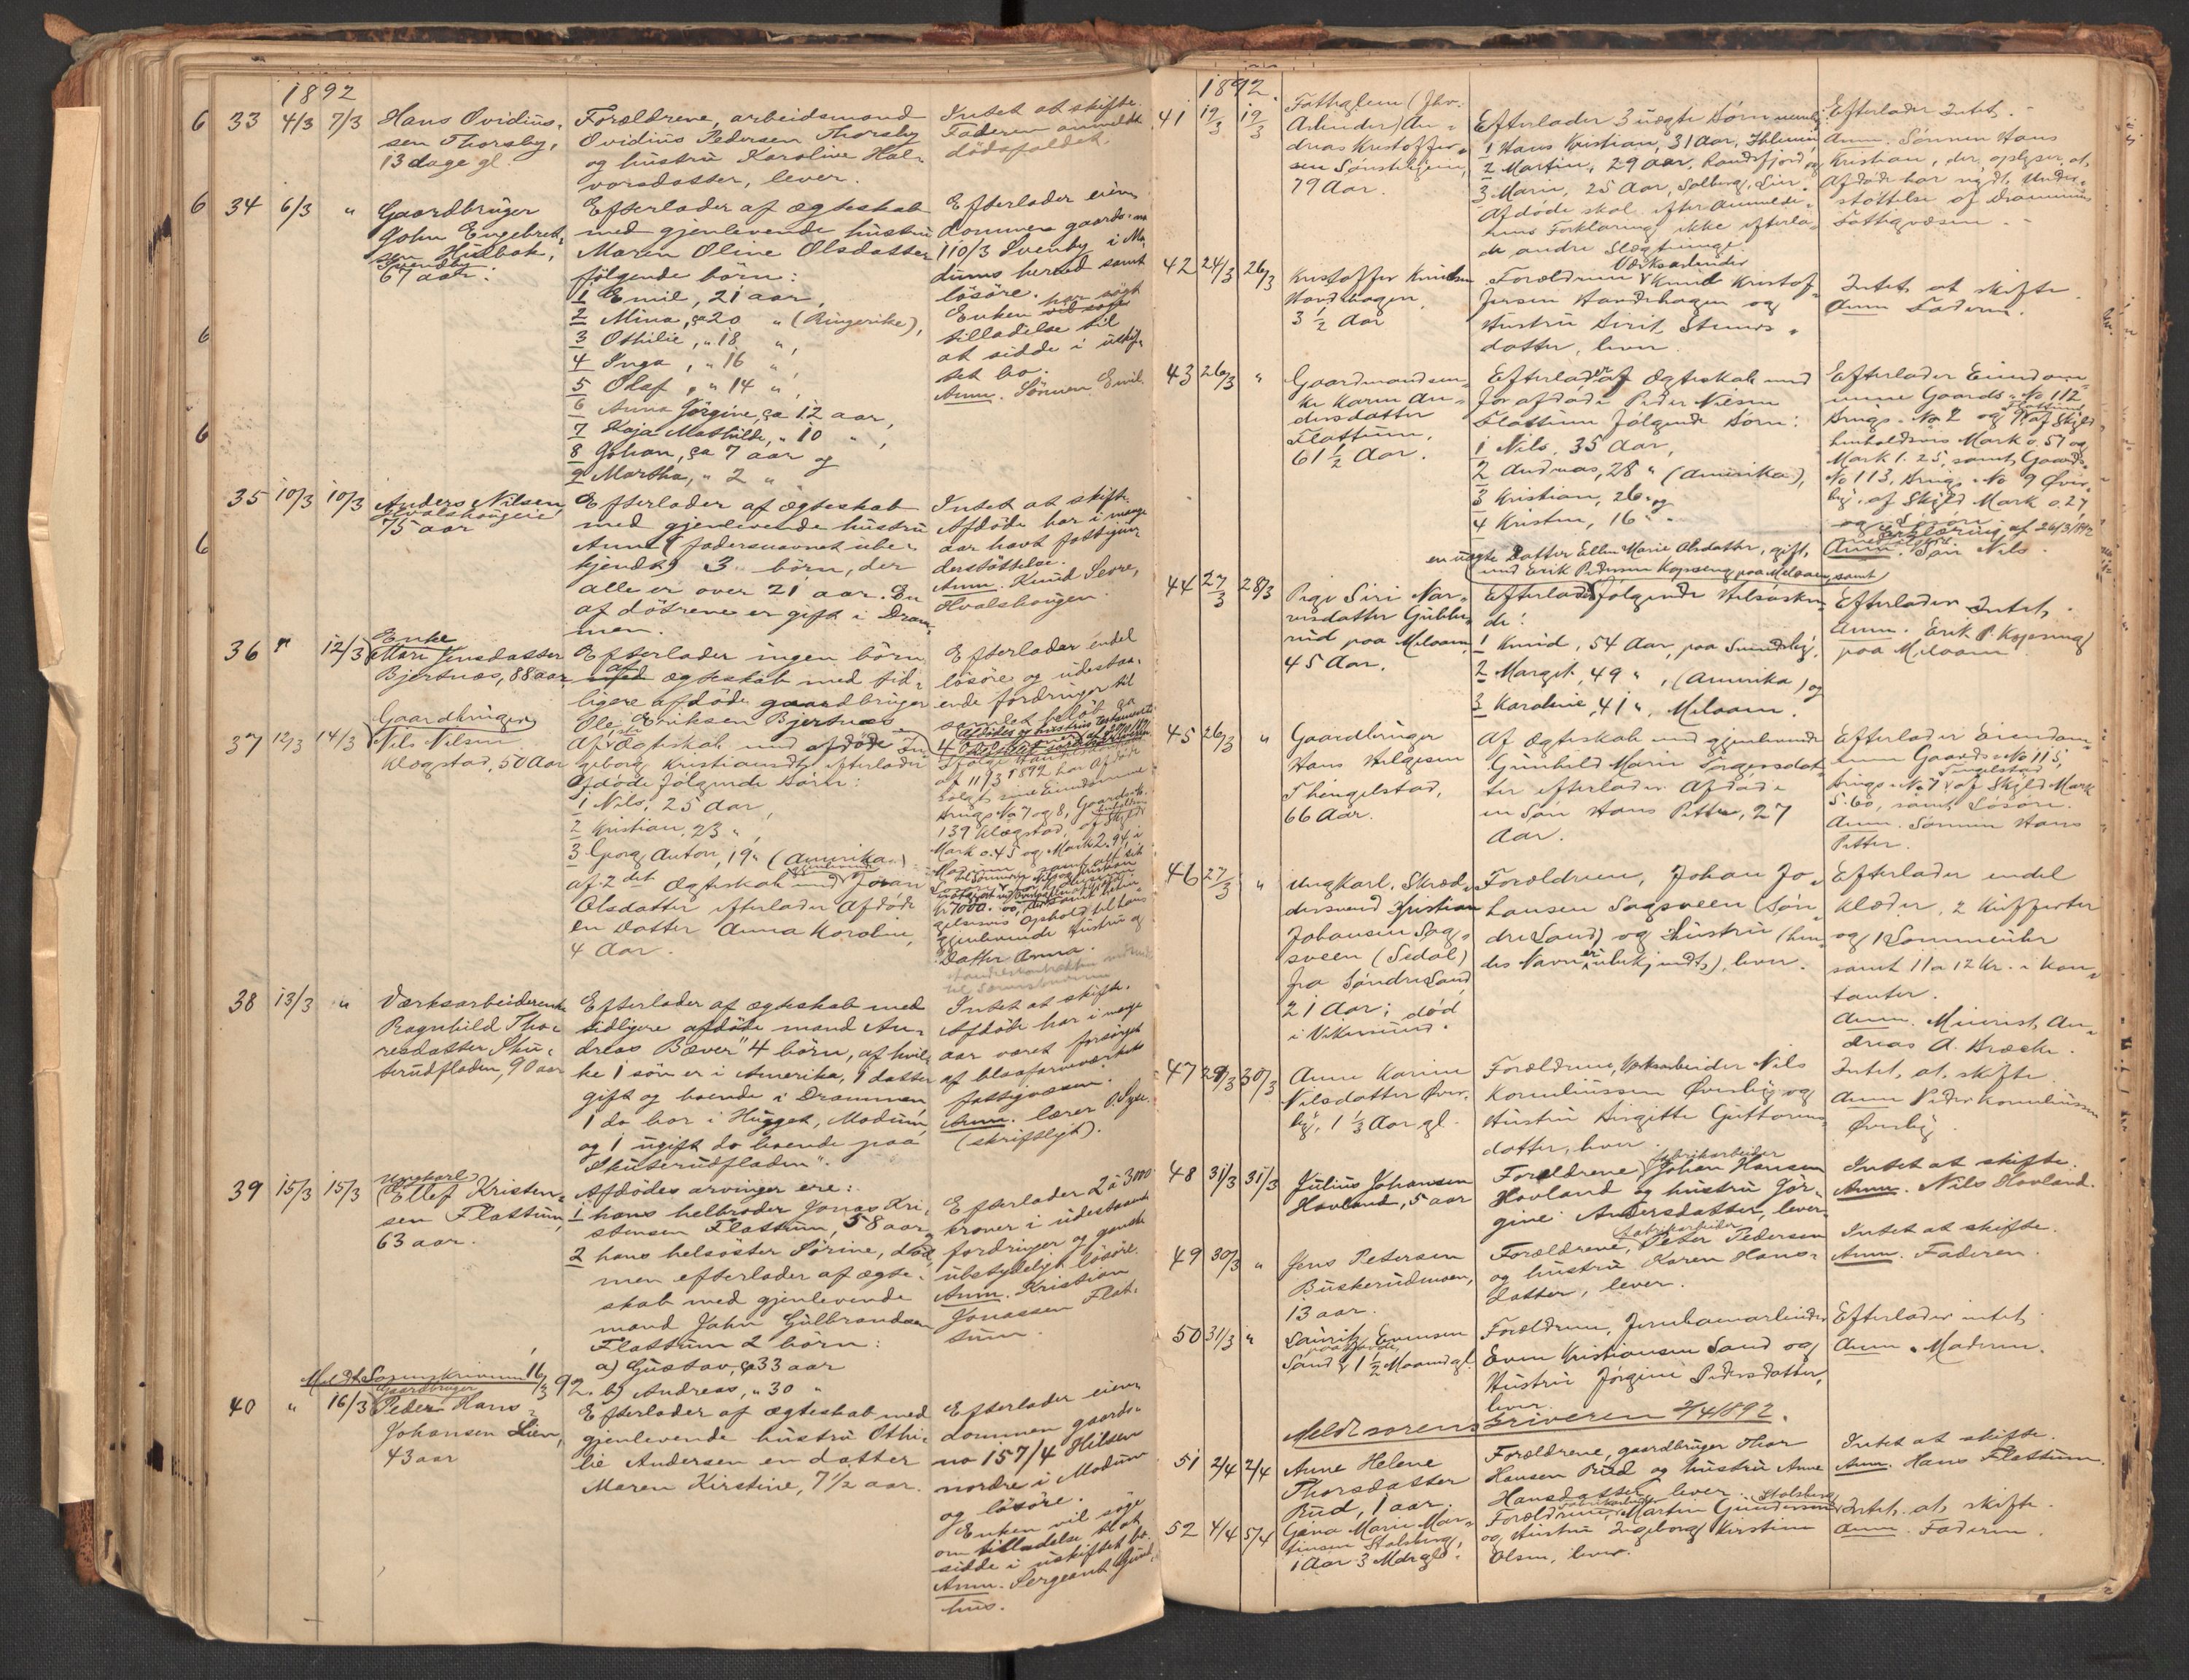 1892
33 4/3 7/3 Hans Ovidius-
sen Thorsby,
13 dage gl.
Forældrene, arbeidsmand
Ovidius Pedersen Thorsby
og hustru Karoline Hal-
vorsdatter, lever.
Intet at skifte.
Faderen anmeldte
dödsfaldet.
34 6/3 " Gaardbruger
John Engebret-
sen
Svendby
67 aar.
Efterlader af ægteskab
med gjenlevende hustru
Maren Oline Olsdatter
følgende børn:
1 Emil, 21 aar,
2 Mina, ca 20 " (Ringerike),
3 Othilie, " 18 ",
4 Inga, " 16 ",
5 Olaf, " 14 ",
6 Anna Jörgine, ca 12 aar,
7 Kaja Mathilde, " 10 ",
8 Johan, ca 7 aar og
9 Martha, " 2 "
Efterlader eien-
dommen gaards-no
110/3 Svenby i Mo-
dums herred samt
lösöre.
Enken har søgt
tilladelse til
at sidde i uskif-
tet bo.
Anm. Sönnen Emil.
35 10/3 10/3 Anders Nilsen
75 aar
Efterlader af ægteskab
med gjenlevende hustru
Anne (fadersnavnet ube-
kjendt) 3 børn, der
alle er over 21 aar. En
af dötrene er gift i Dram-
men.
Intet at skifte.
Afdöde har i mange
aar havt fattigun-
derstöttelse.
Anm. Knud
36 " 12/3 Enke
Mari Jensdatter
Bjertnæs, 88 aar
Efterlader ingen børn
af ægteskab med tid-
ligere afdöde gaardbruger
Ole Eriksen Bjertnæs
Efterlader endel
lösöre og udestaa-
ende fordringer til
samlet beløb ca
37 12/3 14/3 Gaardbruger
Nils Nilsen
Klægstad, 50 Aar
Af Ægteskab med afdöde In-
geborg Kristiansdtr efterlader
Afdöde følgende Børn:
1 Nils, 25 Aar,
2 Kristian, 23 ",
3 Georg Anton, 19 " (Amerika).
af 2det Ægteskab med gjenlevende Joran
Olsdatter efterlader Afdöde
en Datter Anna Karoline,
4 Aar.
af 11/3 1892 har Afdöde
solgt sine Eiendomme
Brugs-No 7 og 8, Gaards-No
139 Klægstad, af Skyld
Mark 0.45 og Mark 2.94, i
gjenlevende Hustru og
Datter Anna.
38 13/3 " Værksarbeiderenke
Ragnhild Tho-
resdatter, Sku-
terudfladen, 90 aar
Efterlader af ægteskab med
tidligere afdöde mand An-
dreas Bæver" 4 börn, af hvil-
ke 1 sön er i Amerika, 1 datter
gift og boende i Drammen
1 do bor i Hugget, Modum,
og 1 ugift do boende paa
Skuterudfladen".
Intet at skifte.
Afdöde har i mange
aar været forsörget
af blaafarveværkets
fattigvæsen.
Anm. lærer
(skriftligt).
39 15/3 15/3 Ungkarl
Ellef Kristen-
sen Flattum,
63 aar.
Afdödes arvinger ere:
1 hans helbroder Jonas Kri-
stensen Flattum, 58 aar, og
2 hans helsöster Sörine, död,
men efterlader af ægte-
skab med gjenlevende
mand John Gulbrandsen
Flattum 2 börn:
a) Gustav, ca 33 aar
b) Andreas, " 30 "
Efterlader 2 à 300
kroner i udestaaende
fordringer og ganske
ubetydeligt lösöre.
Anm. Kristian
Jonassen Flat-
tum.
Meldt Sorenskriveren 16/3 92.
40 " 16/3 Gaardbruger
Peder Hans
Johansen Lien,
43 aar
Efterlader af ægteskab med
gjenlevende hustru Othi-
lie Andersen en datter
Maren Kirstine, 7 1/2 aar.
Efterlader eien-
dommen gaards-
no 157/4 Hilsen
nordre i Modum
og lösöre.
Enken vil söge
om tilladelse til at
sidde i uskiftet bo.
Anm. Sergeant
1892.
41 19/3 19/3 Fattiglem (Fhv.
Arbeider) An-
dreas Kristoffer-
sen
79 Aar.
Efterlader 3 uægte Børn nemlig:
1 Hans Kristian, 31 Aar,
2 Martin, 29 aar, Randsfjord og
3 Marie, 25 Aar, Solberg, Lier.
Afdöde skal efter Anmelde-
rens Forklaring ikke efterla-
de andre Slægtninge.
Efterlader Intet.
Anm. Sønnen Hans
Kristian, der oplyser at
Afdöde har nydt Under-
støttelse af Drammens
Fattigvæsen.
42 24/3 26/3 Kristoffer Knudsen
3 1/2 Aar
Forældrene Værksarbeider Knud Kristof-
fersen og
Hustru Sirit Steners-
datter, lever.
Intet at skifte.
Anm Faderen.
43 26/3 " Gaardmandsen-
ke Karen An-
dersdatter
Flattum,
61 1/2 Aar.
Efterlader af Ægteskab med
før afdöde Peder Nilsen
Flattum følgende Børn:
1 Nils, 35 Aar,
2 Andreas, 28 " (Amerika),
3 Kristian, 26 " og
4 Kristen, 16 " .
Efterlader Eiendom-
mene Gaards-No 112
Brugs-No 2 og af Skyld
henholdsvis Mark 0.57 og
Mark 1.25, samt Gaards-
No 113, Brugs-No 9 Øver-
by, af Skyld Mark 0.27,
og Løsøre.
Anm. Søn Nils.
en uægte Datter Ellen Marie Olsdatter, gift
med Erik Pedersen Kopseng paa Meloaen, samt
44 27/3 28/3 Pige Siri
paa Meloaen
45 Aar.
Efterlader følgende Helsøsken-
de:
1 Knud, 54 Aar, paa
2 Marget, 49 ", (Amerika) og
3 Karoline, 41 ", Meloaen.
Efterlader Intet.
Anm. Erik P. Kopseng
paa Meloaen
45 26/3 " Gaardbruger
Hans Helgesen
Thingelstad,
66 Aar.
Af Ægteskab med gjenlevende
Gunhild Marie Torgersdat-
ter efterlader Afdöde
en Søn Hans Petter, 27
Aar.
Efterlader Eiendom-
men Gaards-No 115,
Brugs-No 7 Tingelstad af Skyld Mark
5.60, samt Løsøre.
Anm. Sønnen Hans
Petter.
46 27/3 " Ungkarl, Skræd-
dersvend Kristian
Johansen Sag-
sveen (Sedal)
fra Søndre Land
21 Aar; død
i Vikersund.
Forældrene, Johan Jo-
hansen Sagsveen (Søn-
dre Land) og Hustru (hen-
des Navn er ubekjendt), lever.
Efterlader endel
Klæder, 2 Kufferter
og 1 Lommeuhr
samt 11 a 12 Kr. i Kon-
tanter.
Anm. Minerist An-
dreas A. Bræcke.
47 29/3 30/3 Anne Karine
Nilsdatter Øver-
by, 1 1/3 Aar gl.
Forældrene, Værksarbeider Nils
Korneliussen Øverby og
Hustru Birgitte Guttorms-
datter, lever.
Intet at skifte.
Anm Peder Korneliussen
Øverby
48 31/3 31/3 Julius Johansen
Hovland, 5 aar
Forældrene fabrikarbeider Johan Hansen
Hovland og hustru Jör-
gine Andersdatter, lever.
Intet at skifte.
Anm. Nils Hovland.
49 30/3 " Jens Petersen
Buskerudmoen,
13 aar.
Forældrene, fabrikarbeider Peter Pedersen
og hustru Karen Hans-
datter, lever.
Intet at skifte.
Anm. Faderen.
50 31/3 " Lauritz Evensen
Sand, 1 1/2 Maaned gl.
Forældrene, Jernbanearbeider
Even Kristiansen Sand og
Hustru Jørgine Pedersdatter,
lever.
Efterlader intet.
Anm. Moderen.
Meldt sorenskriveren 2/4 1892.
51 2/4 2/4 Anne Helene
Thorsdatter
Rud, 1 aar.
Forældrene, gaardbruger Thor
Hansen Rud og hustru Anne
Hansdatter, lever.
Intet at skifte.
Anm. Hans Flattum.
52 4/4 5/4 Gina Marie Mar-
tinsen Stalsberg,
1 Aar 3 Mdr gl.
Forældrene, fabrikarbeider Martin Gundersen Stalsberg
og Hustru Ingeborg Kirstine
Olsen, lever.
Intet at skifte.
Anm. Faderen.